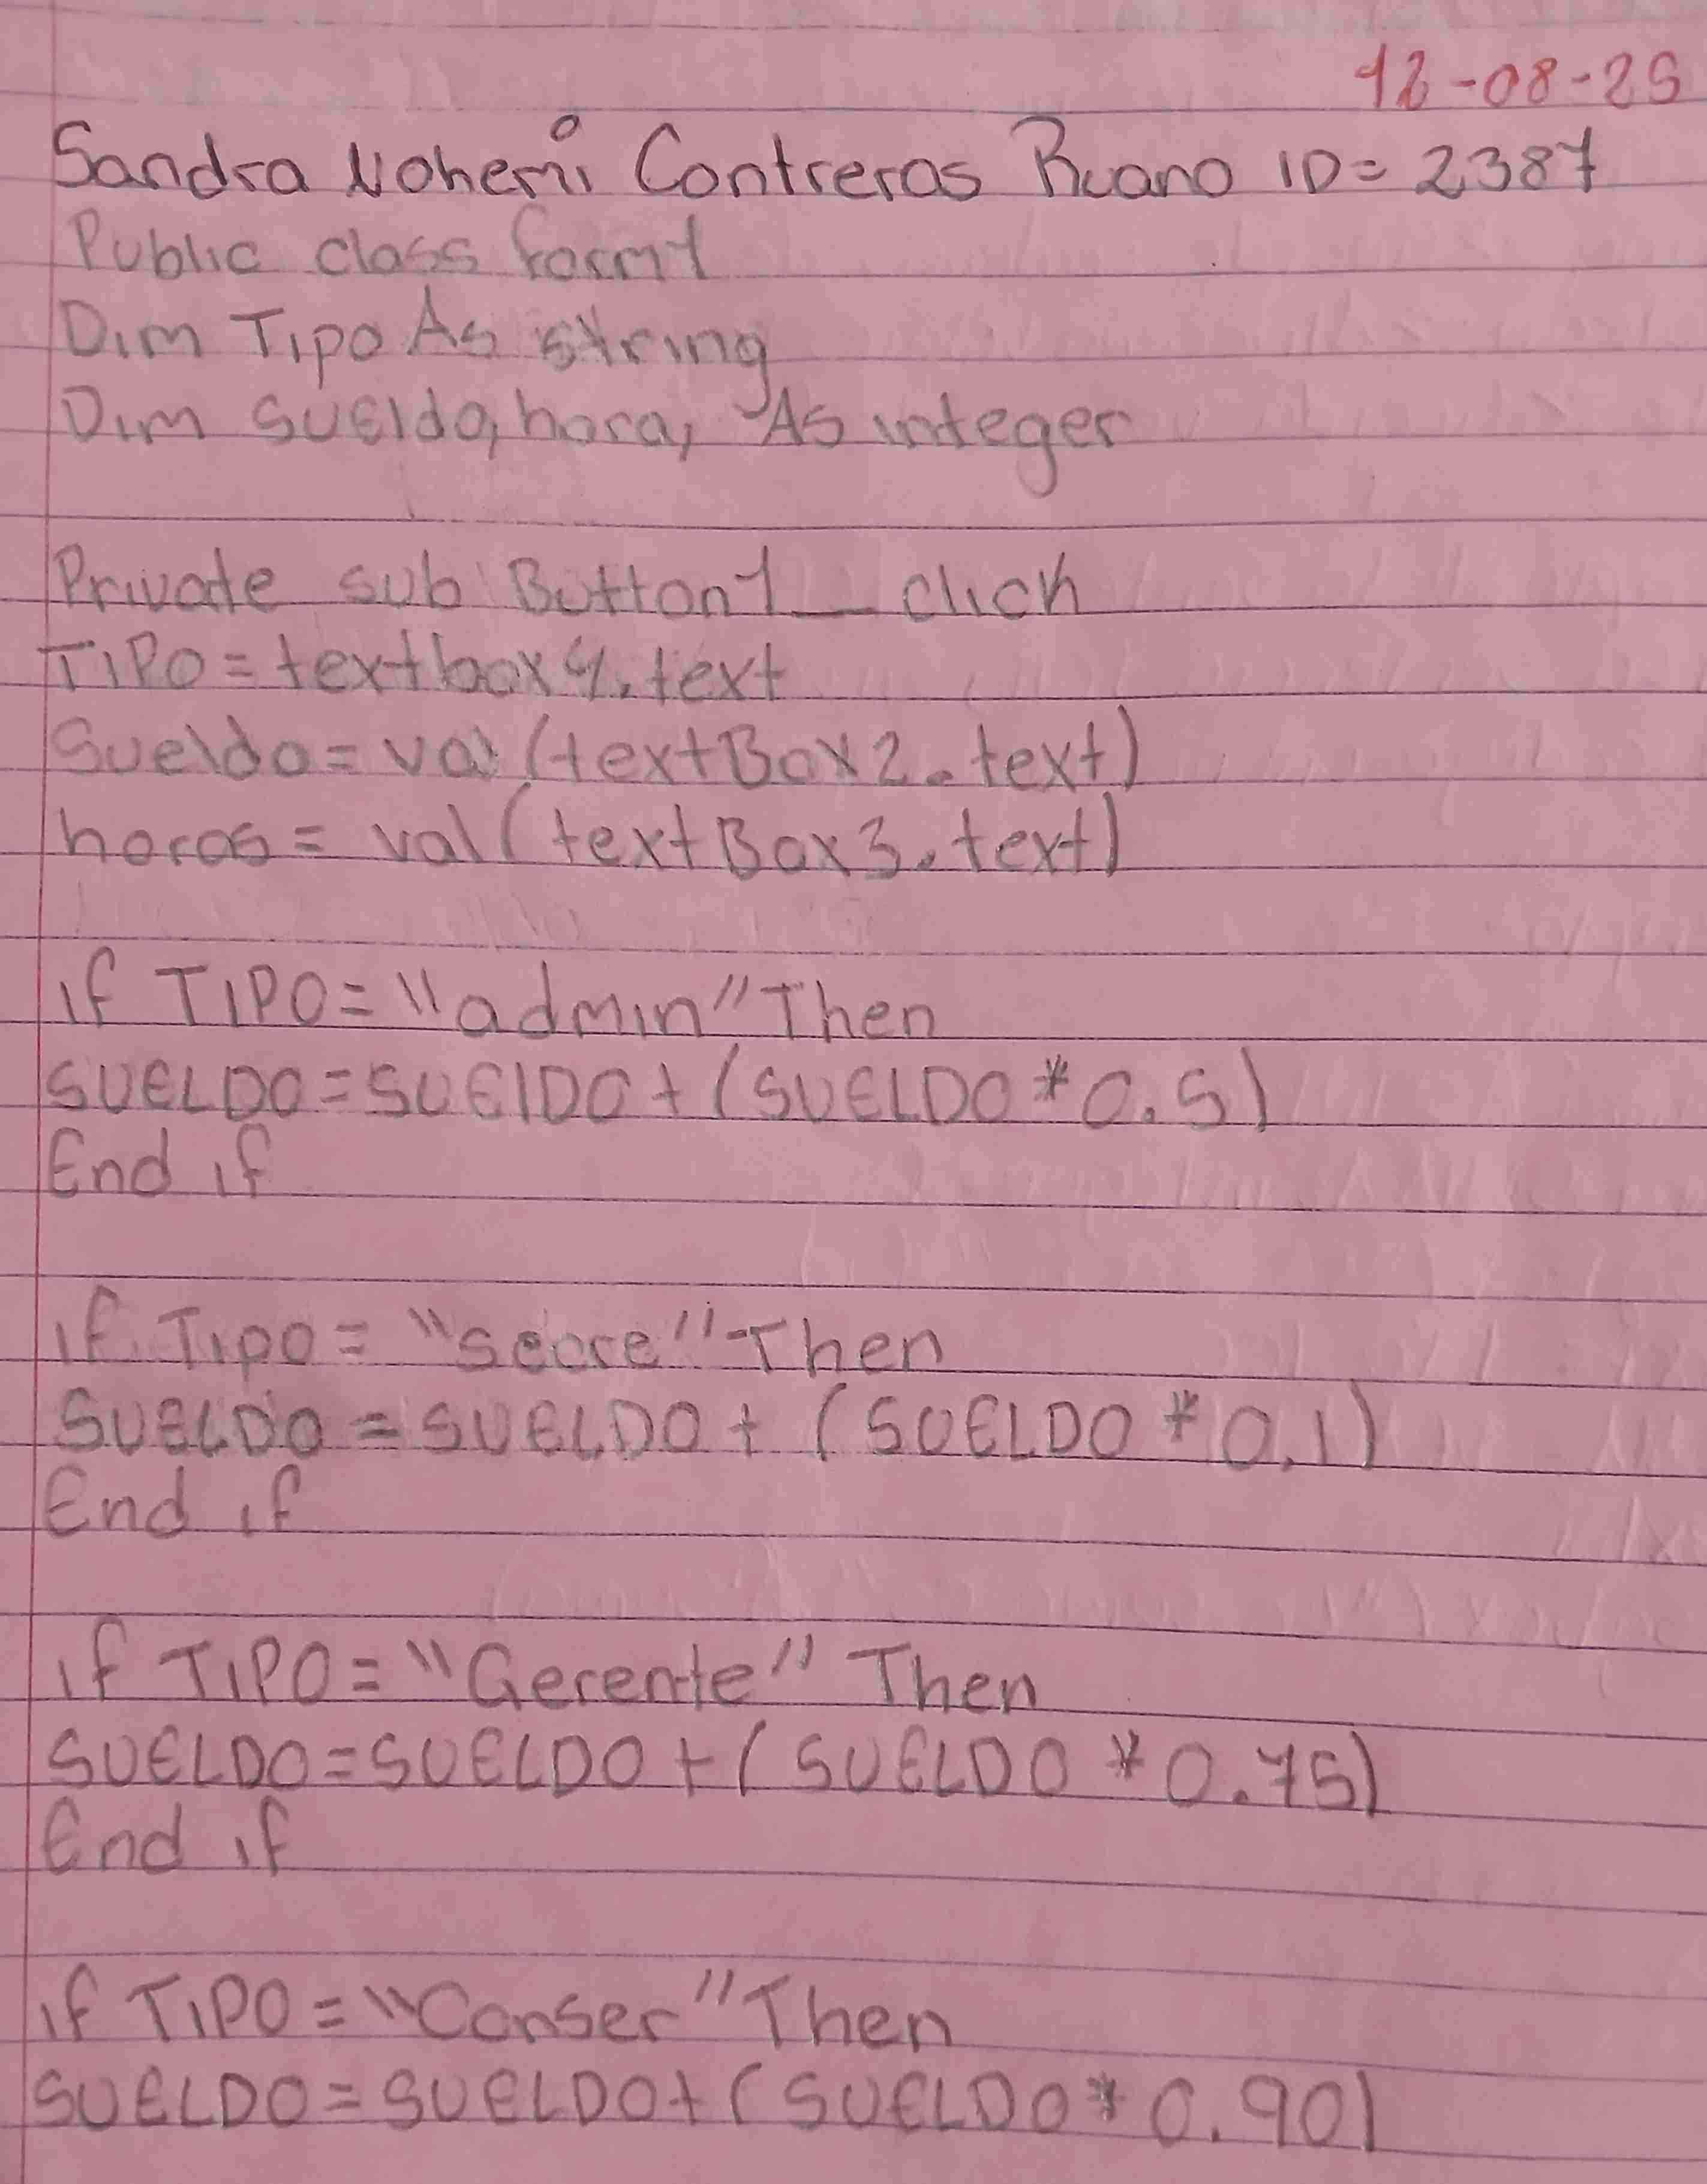 12-08-25
Sandra Nohemí Contreras Ruano ID= 2387
Public class form1
Dim Tipo As string
Dim SUEldo, hora, As integer
Private sub Button1_click
TIPO = textbox1.text
Sueldo = val (textBox2.text)
horas = val (textBox3.text)
if TIPO = "admin" Then
SUELDO = SUElDO + (SUELDO * 0.5)
End if
if Tipo = "secre" Then
SUELDO = SUELDO + (SUELDO * 0.1)
End if
if TIPO = "Gerente" Then
SUELDO = SUELDO + (SUELDO * 0.75)
End if
if TIPO = "Conser" Then
SUELDO = SUELDO + (SUELDO * 0.90)